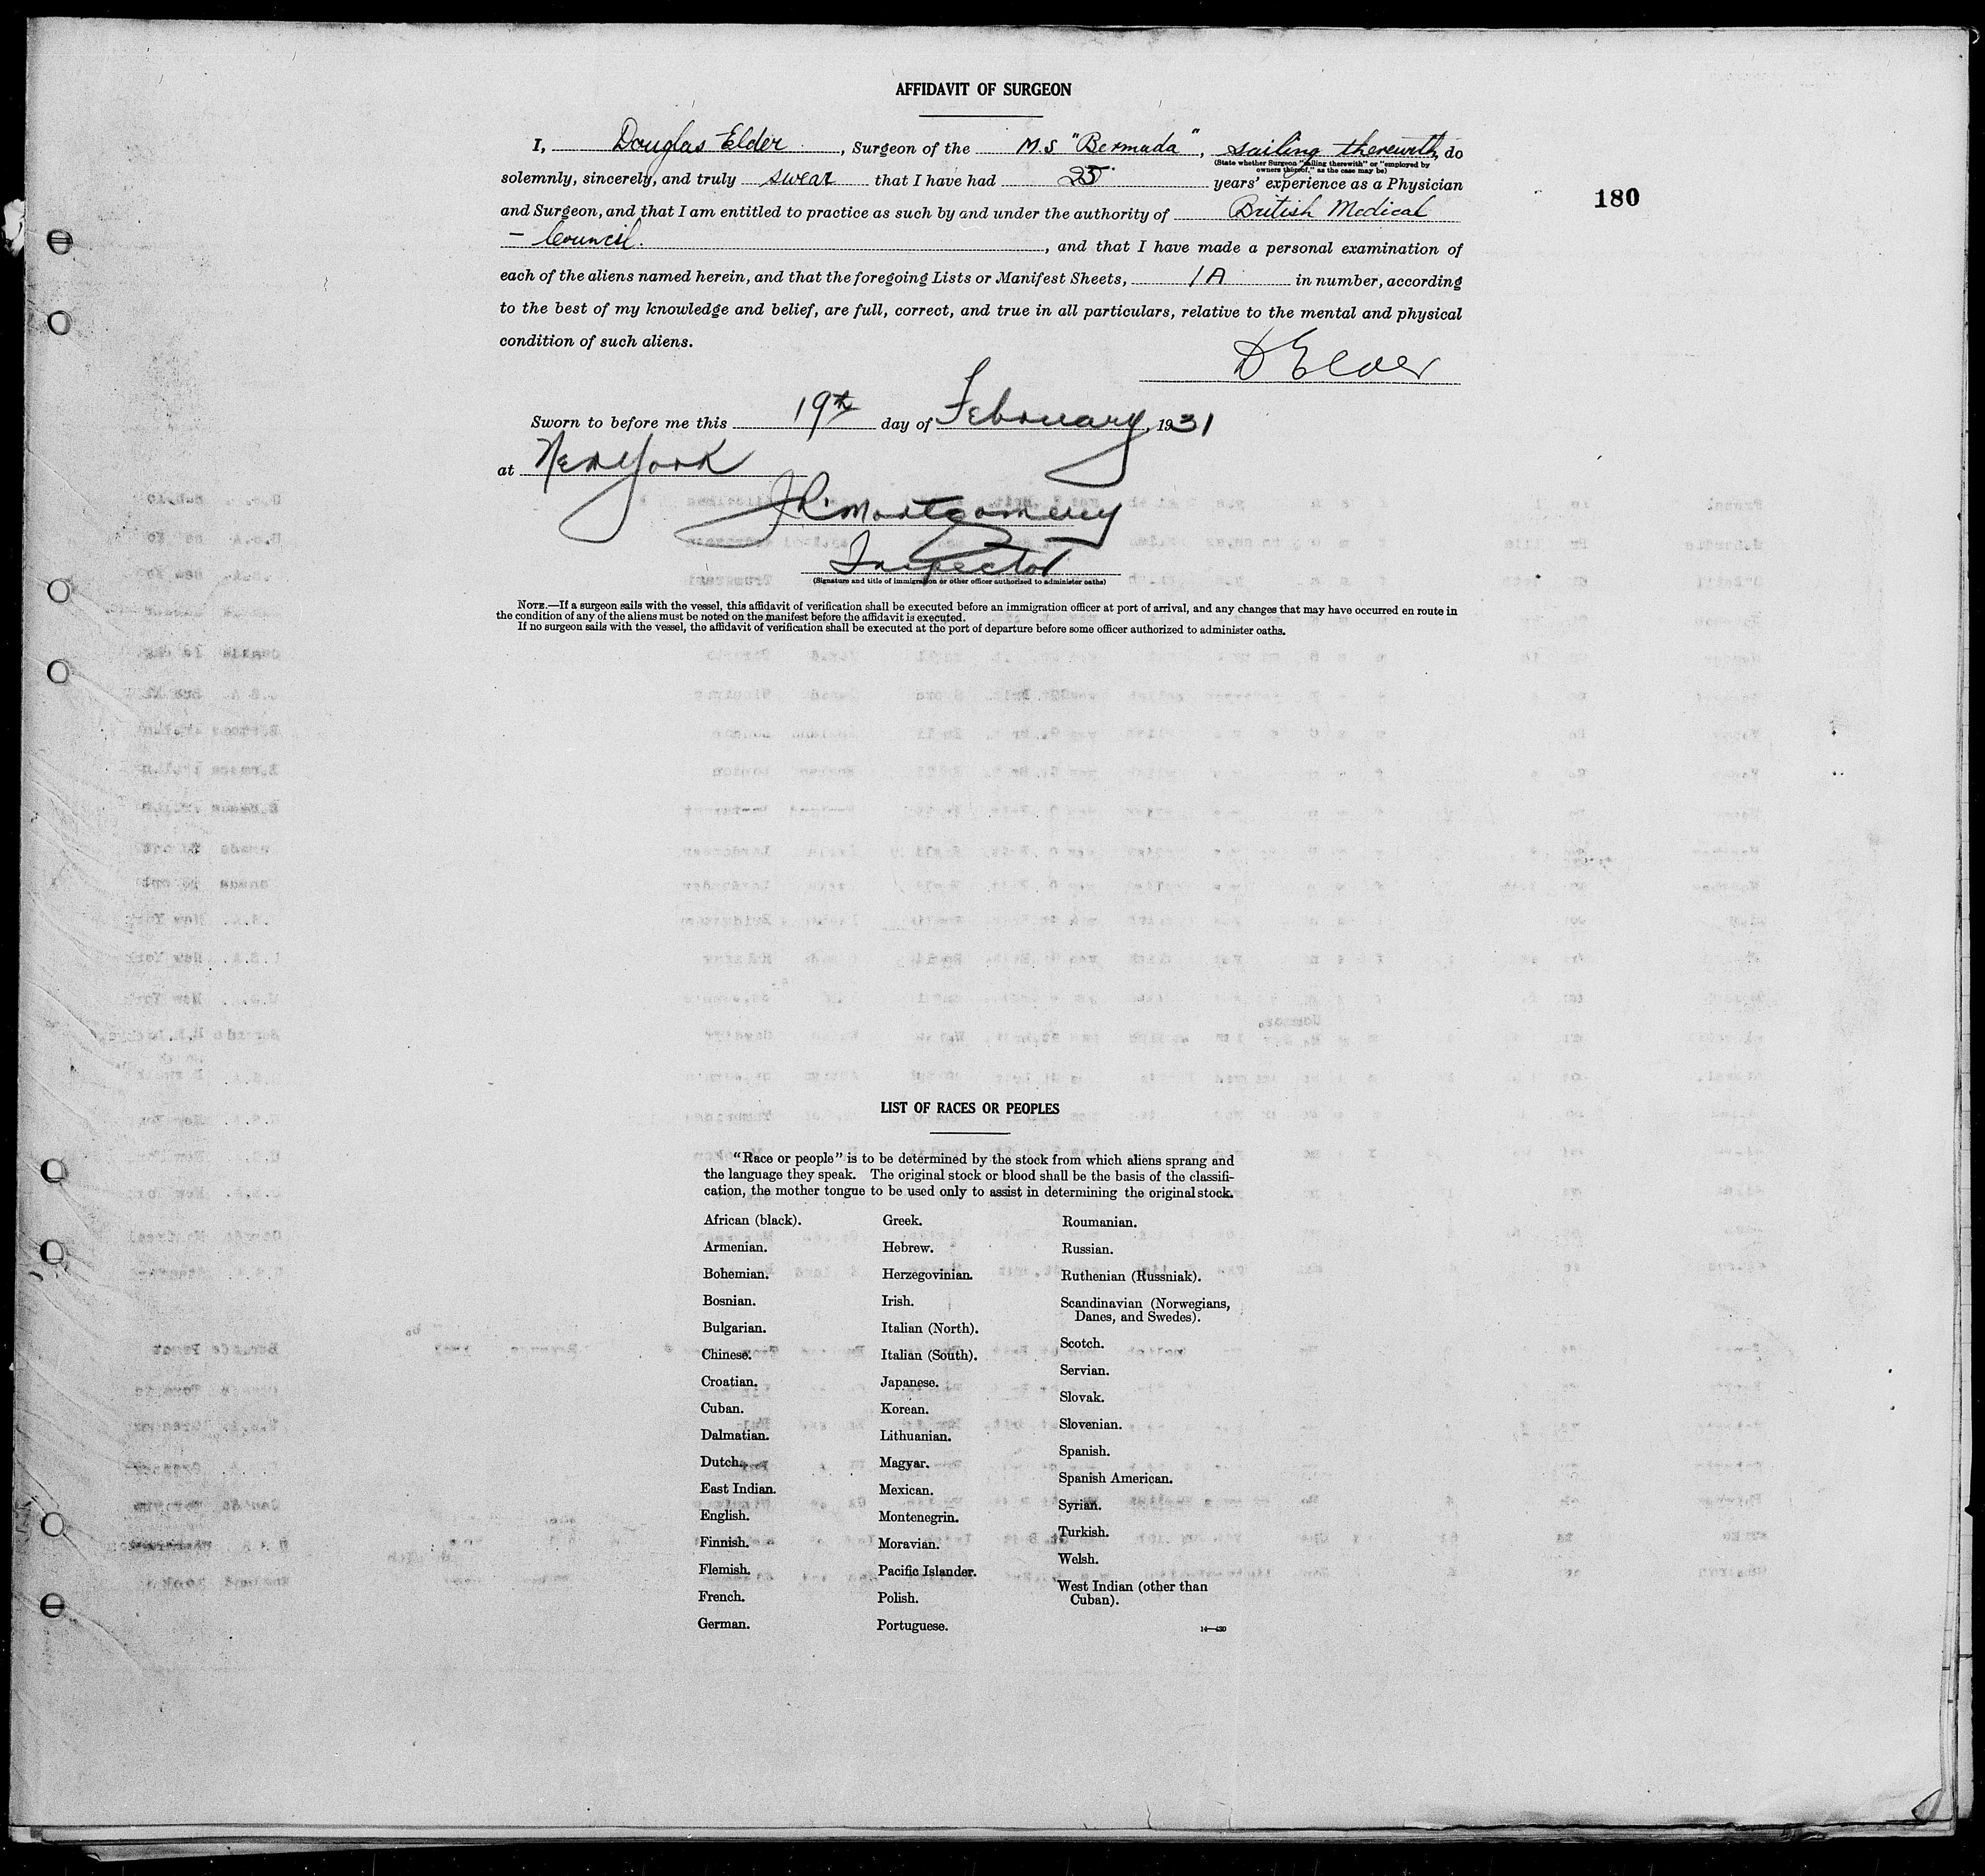 AFFIDAVIT OF SURGEON
I, Douglas Elder, Surgeon of the M.S "Bermuda", sailing therewith, do
(State whether Surgeon "sailing therewith" or "employed by
owners thereof," as the case may be)
solemnly, sincerely, and truly swear that I have had 25 years' experience as a Physician
180
and Surgeon, and that I am entitled to practice as such by and under the authority of British Medical
– Council., and that I have made a personal examination of
each of the aliens named herein, and that the foregoing Lists or Manifest Sheets, 1A in number, according
to the best of my knowledge and belief, are full, correct, and true in all particulars, relative to the mental and physical
condition of such aliens.
D Elder
Sworn to before me this 19th day of February, 1931
at New York
J R. Montgomery
Inspector
(Signature and title of immigration or other officer authorized to administer oaths)
NOTE.—If a surgeon sails with the vessel, this affidavit of verification shall be executed before an immigration officer at port of arrival, and any changes that may have occurred en route in
the condition of any of the aliens must be noted on the manifest before the affidavit is executed.
If no surgeon sails with the vessel, the affidavit of verification shall be executed at the port of departure before some officer authorized to administer oaths.
LIST OF RACES OR PEOPLES
"Race or people" is to be determined by the stock from which aliens sprang and
the language they speak. The original stock or blood shall be the basis of the classifi-
cation, the mother tongue to be used only to assist in determining the original stock.
African (black).
Armenian.
Bohemian.
Bosnian.
Bulgarian.
Chinese.
Croatian.
Cuban.
Dalmatian.
Dutch.
East Indian.
English.
Finnish.
Flemish.
French.
German.
Greek.
Hebrew.
Herzegovinian.
Irish.
Italian (North).
Italian (South).
Japanese.
Korean.
Lithuanian.
Magyar.
Mexican.
Montenegrin.
Moravian.
Pacific Islander.
Polish.
Portuguese.
Roumanian.
Russian.
Ruthenian (Russniak).
Scandinavian (Norwegians,
Danes, and Swedes).
Scotch.
Servian.
Slovak.
Slovenian.
Spanish.
Spanish American.
Syrian.
Turkish.
Welsh.
West Indian (other than
Cuban).
14—430